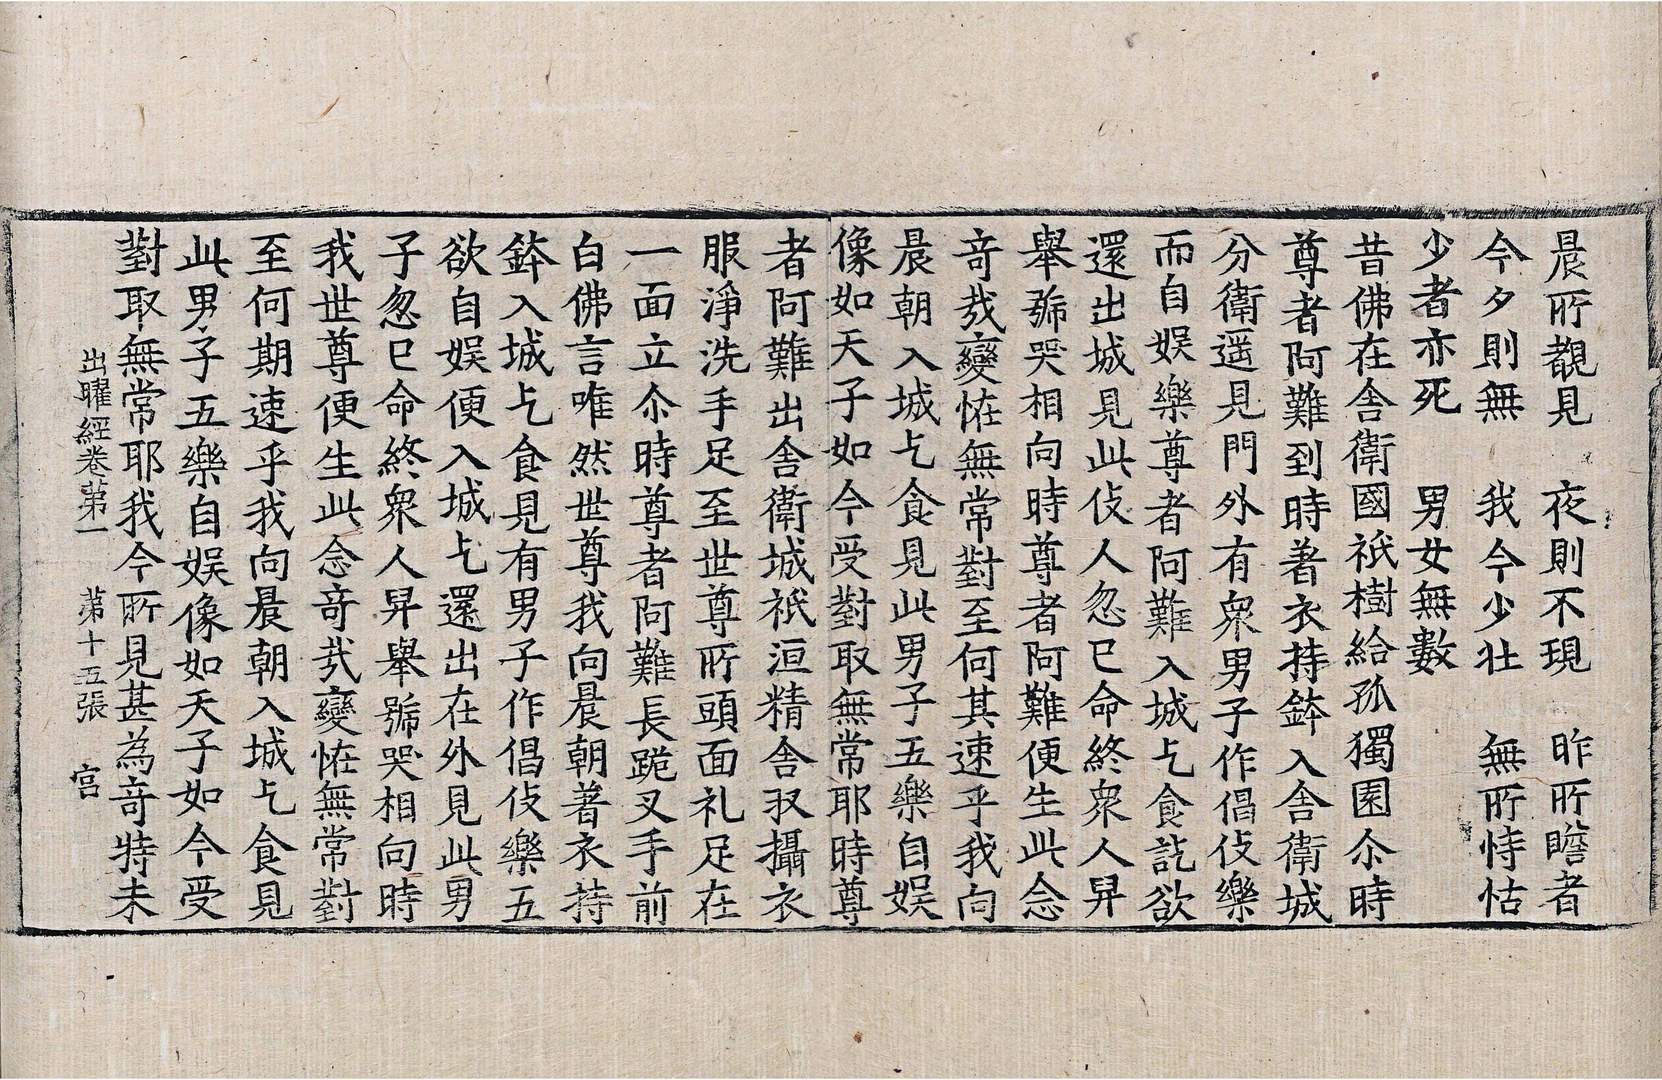 晨所覩見　夜則不現　昨所瞻者
今夕則無　我今少壯　無所恃怙
少者亦死　男女無數
昔佛在舍衛國祇樹給孤獨園尒時
尊者阿難到時著衣持鉢入舍衛城
分衛遥見門外有衆男子作倡伎樂
而自娛樂尊者阿難入城乞食訖欲
還出城見此伎人忽已命終衆人舁
舉號哭相向時尊者阿難便生此念
竒哉變恠無常對至何其速乎我向
晨朝入城乞食見此男子五樂自娛
像如天子如今受對取無常耶時尊
者阿難出舍衛城祇洹精舍収攝衣
服淨洗手足至世尊所頭面礼足在
一面立尒時尊者阿難長跪叉手前
白佛言唯然世尊我向晨朝著衣持
鉢入城乞食見有男子作倡伎樂五
欲自娛便入城乞還出在外見此男
子忽已命終衆人舁舉號哭相向時
我世尊便生此念竒哉變恠無常對
至何期速乎我向晨朝入城乞食見
此男子五樂自娛像如天子如今受
對取無常耶我今所見甚為竒特未
出曜經卷苐一　苐十五張　宫